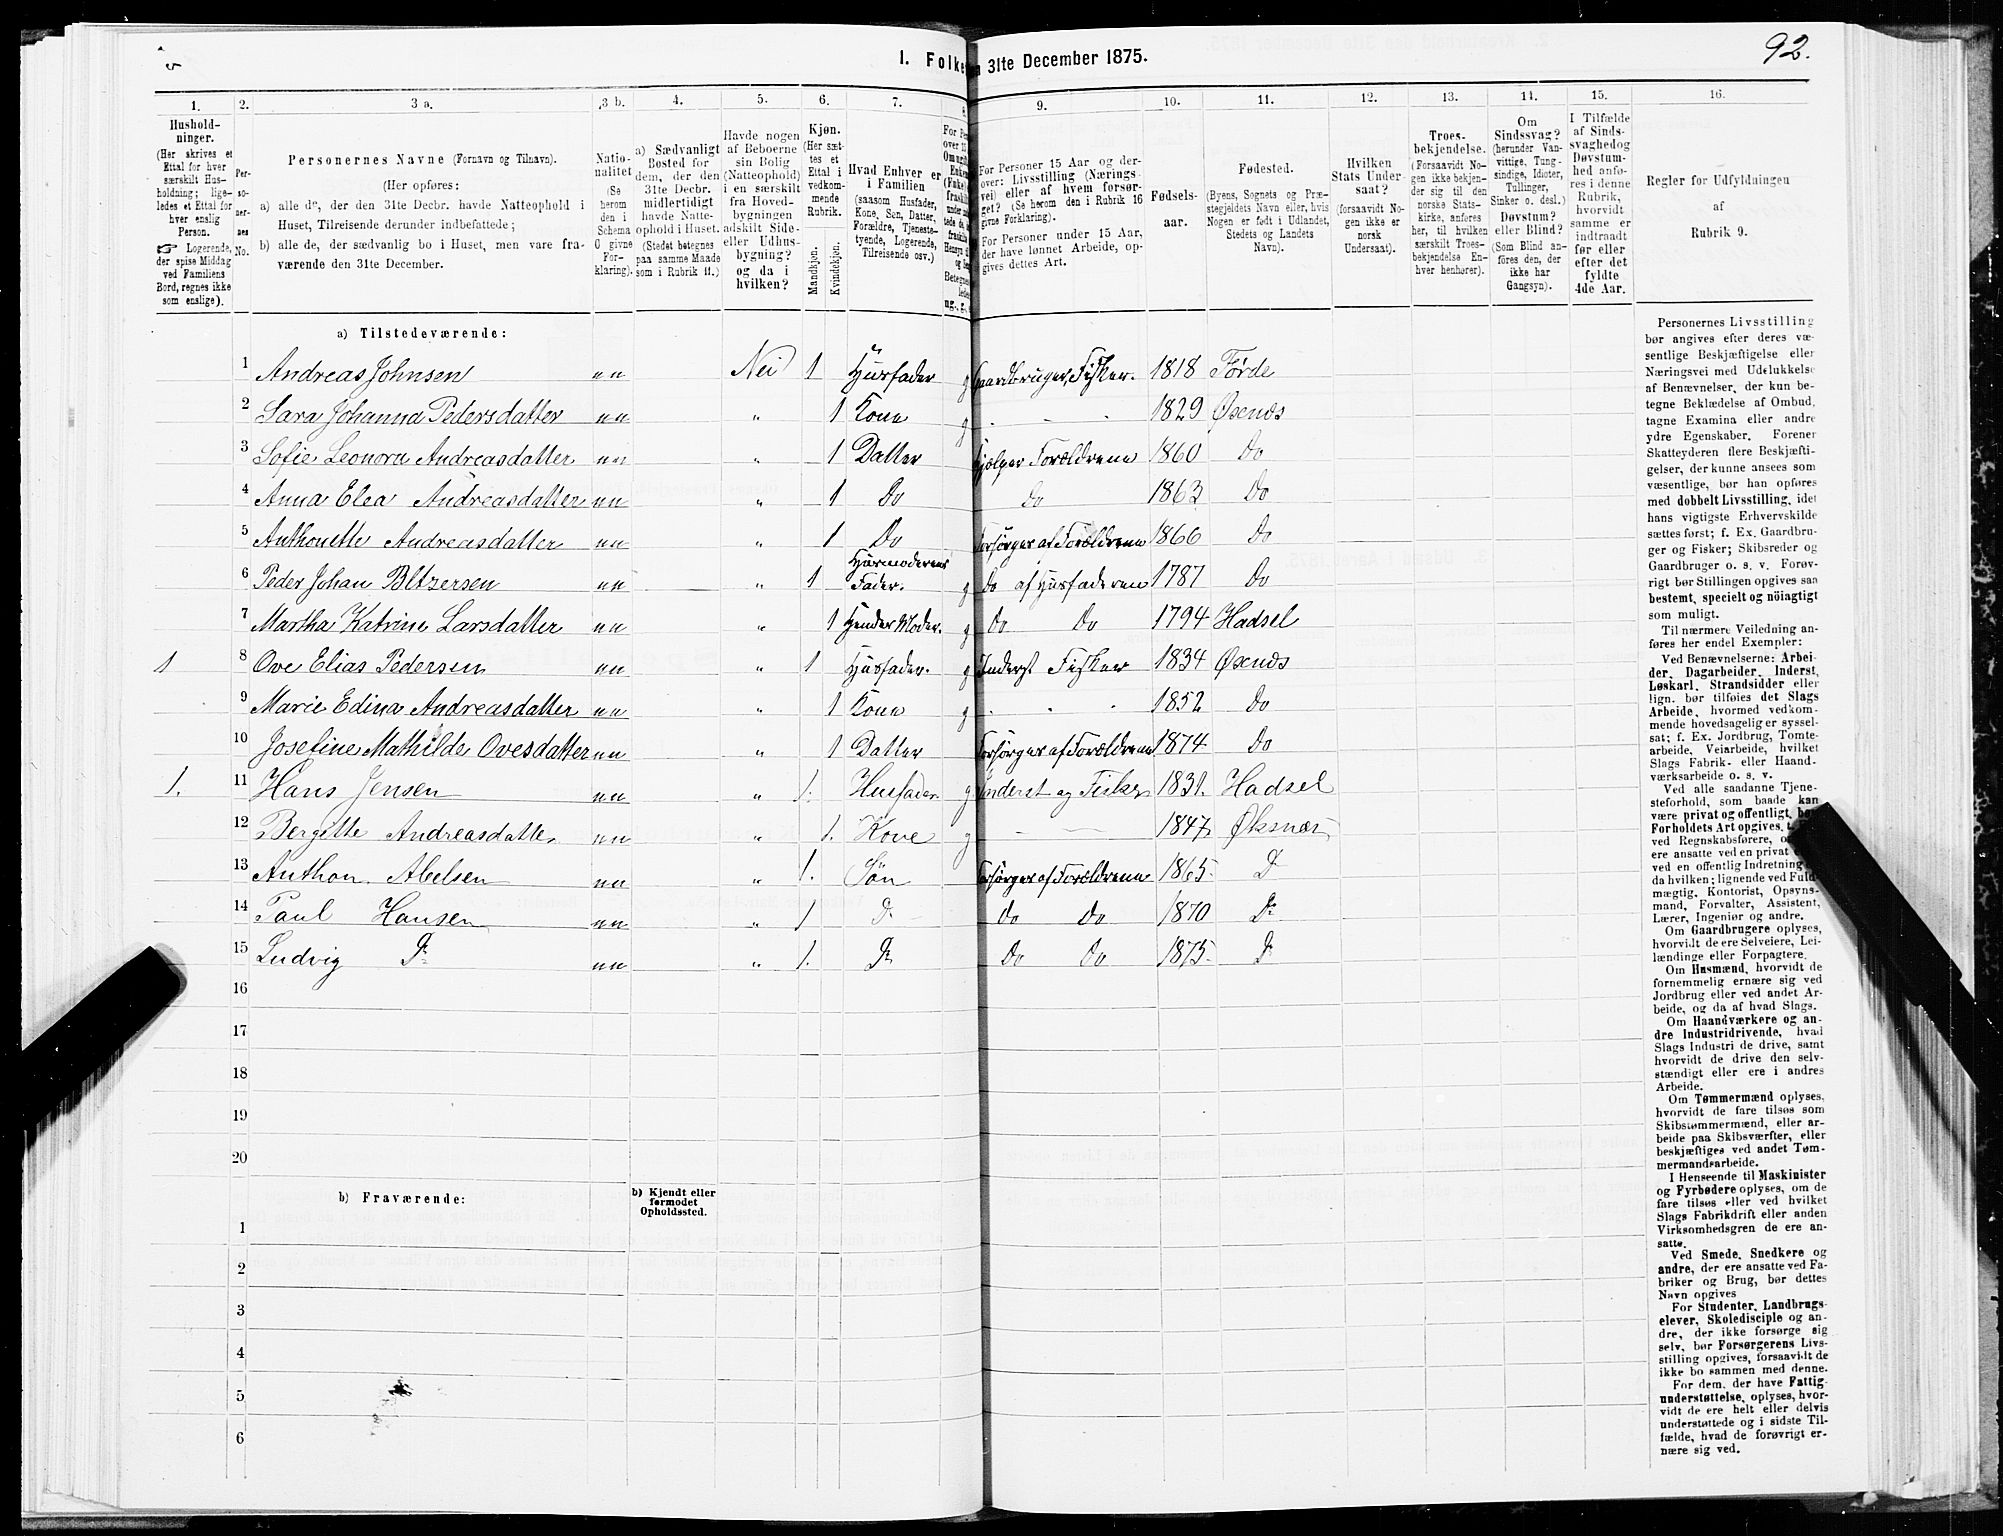 1. Folke
n 31te December 1875.
92.
1.
2.
3 a.
3 b.
4.
5.
6.
7.
8.
9.
10.
11.
12.
13.
14.
15.
16.
Hushold-
ninger.
(Her skrives et
Ettal for hver
særskilt Hus-
holdning; lige-
ledes et Ettal for
hver enslig
Person.
☞ Logerende,
der spise Middag
ved Familiens
Bord, regnes ikke
som enslige).
Per-
so-
ner-
nes
No.
Personernes Navne (Fornavn og Tilnavn).
(Her opføres:
a) alle de, der den 31te Decbr. havde Natteophold i
Huset, Tilreisende derunder indbefattede;
b) alle de, der sædvanlig bo i Huset, men vare fra-
værende den 31te December.
Natio-
nalitet
(Se
herom
den i
Schema
O givne
For-
klaring).
a) Sædvanligt
Bosted for
dem, der den
31te Decbr.
midlertidigt
havde Natte-
ophold i Huset.
(Stedet betegnes
paa samme Maade
som i Rubrik 11.)
Havde nogen
af Beboerne
sin Bolig
(Natteophold)
i en særskilt
fra Hoved-
bygningen
adskilt Side-
eller Udhus-
bygning?
og da i
hvilken?
Kjøn.
(Her sæt-
tes et
Ettal i
vedkom-
mende
Rubrik.
Mandkjøn.
Kvindekjøn.
Hvad Enhver er
i Familien
(saasom Husfader,
Kone, Søn, Datter,
Forældre, Tjeneste-
tyende, Logerende,
Tilreisende osv.)
For Personer 15 Aar og der-
over: Livsstilling (Nærings-
vei) eller af hvem forsør-
get? (Se herom den i Rubrik 16
givne Forklaring).
For Personer under 15 Aar,
der have lønnet Arbeide, op-
gives dettes Art.
Fødsels-
aar.
Fødested.
(Byens, Sognets og Præ-
stegjeldets Navn eller, hvis
Nogen er født i Udlandet,
Stedets og Landets
Navn).
Hvilken
Stats Under-
saat?
(forsaavidt No-
gen ikke er
norsk
Undersaat).
Troes-
bekjendelse.
(Forsaavidt No-
gen ikke bekjen-
der sig til den
norske Stats-
kirke, anføres
her, til hvilken
særskilt Troes-
bekjendelse En-
hver henhører).
Om
Sindssvag?
(herunder Van-
vittige, Tung-
sindige, Idioter,
Tullinger,
Sinker o. desl.)
Døvstum?
eller Blind?
(Som Blind an-
føres den, der
ikke har
Gangsyn).
I Tilfælde
af Sinds-
svaghed og
Døvstum-
hed anfø-
res i denne
Rubrik,
hvorvidt
samme er
indtraadt
før eller
efter det
fyldte
4de Aar.
Regler for Udfyldningen
af
Rubrik 9.
a) Tilstedeværende:
1 Andreas Johnsen nn Nei 1 Husfader g Gaardbruger, Fisker. 1818 Førde
2 Sara Johanna Pedersdatter nn " 1 Kone g - - 1829 Øxenæs
3 Sofie Leonora Andreasdatter nn " 1 Datter Hjælper Forældrene 1860 Do
4 Anna Elea Andreasdatter nn " 1 Do Do 1863 Do
5 Anthonette Andreasdatter nn " 1 Do Forsørges af Forældrene 1866 Do
6 Peder Johan Bltzersen nn " 1 Husmoderens Fader. g Do af Husfaderen 1787 Do
7 Martha Katrine Larsdatter nn " 1 Hendes Moder. g Do Do 1794 Hadsel
1 8 Ove Elias Pedersen nn " 1 Husfader. g Inderst Fisker 1834 Øxenæs
9 Marie Edina Andreasdatter nn " 1 Kone g - - - 1852 Do
10 Josefine Mathilde Ovesdatter nn " 1 Datter Forsørges af Forældrene 1874 Do
1. 11 Hans Jensen nn " 1. Husfader g Inderst og Fisker 1831. Hadsel
12 Bergitte Andreasdatter nn " 1. Kone g - - 1847 Øksnæs
13 Anthon Abelsen nn " 1. Søn Forsørges af Forældrene 1865 Do
14 Paul Hansen nn " 1 Do Do Do 1870 Do
15 Ludvig Do nn " 1. Do Do Do 1875 Do
16
17
18
19
20
b) Fraværende:
b) Kjendt eller
formodet
Opholdssted.
1
2
3
4
5
6
Personernes Livsstilling
bør angives efter deres væ-
sentlige Beskjæftigelse eller
Næringsvei med Udelukkelse
af Benævnelser, der kun be-
tegne Beklædelse af Ombud,
tagne Examina eller andre
ydre Egenskaber. Forener
Skatteyderen flere Beskjæfti-
gelser, der kunne ansees som
væsentlige, bør han opføres
med dobbelt Livsstilling, idet
hans vigtigste Erhvervskilde
sættes først; f. Ex. Gaardbru-
ger og Fisker; Skibsreder og
Gaardbruger o. s. v. Forøv-
rigt bør Stillingen opgives saa
bestemt, specielt og nöiagtigt
som muligt.
Til nærmere Veiledning an-
føres her endel Exempler:
Ved Benævnelserne: Arbei-
der, Dagarbeider, Inderst,
Løskarl, Strandsidder eller
lign. bør tilføies det Slags
Arbeide, hvormed vedkom-
mende hovedsagelig er syssel-
sat; f. Ex. Jordbrug, Tomte-
arbeide, Veiarbeide, hvilket
Slags Fabrik- eller Haand-
værksarbeide o. s. v.
Ved alle saadanne Tjene-
steforhold, som baade kan
være privat og offentligt, bør
Forholdets Art opgives,
ved Regnskabsførere,
ere ansatte ved en privat
ved en offentlig Indretning
da hvilken; lignende ved Fuld-
mægtig, Kontorist, Opsyns-
mand, Forvalter, Assistent,
Lærer, Ingeniør og andre.
Om Gaardbrugere oplyses,
hvorvidt de ere Selveiere, Lei-
lændinge eller Forpagtere.
Om Husmænd, hvorvidt de
fornemmelig ernære sig ved
Jordbrug eller ved andet Ar-
beide, og da af hvad Slags.
Om Haandværkere og an-
dre Industridrivende, hvad
Slags Industri de drive, samt
hvorvidt de drive den selv-
stændigt eller ere i andres
Arbeide.
Om Tømmermænd oplyses,
hvorvidt de fare tilsøs som
Skibstømmermænd, eller ar-
beide paa Skibsværfter, eller
beskjæftiges ved andet Tøm-
mermandsarbeide.
I Henseende til Maskinister
og Fyrbødere oplyses, om de
fare tilsøs eller ved hvilket
Slags Fabrikdrift eller anden
Virksomhedsgren de ere an-
satte.
Ved Smede, Snedkere og
andre, der ere ansatte ved Fa-
briker og Brug, bør dettes
Navn opgives
For Studenter, Landbrugs-
elever, Skoledisciple og an-
dre, der ikke forsørge sig
selv, bør Forsørgerens Livs-
stilling opgives, forsaavidt de
ikke bo sammen med denne.
For dem, der have Fattig-
understøttelse, oplyses, hvor-
vidt de ere helt eller delvis
understøttede og i sidste Til-
fælde, hvad de forøvrigt er-
nære sig ved.